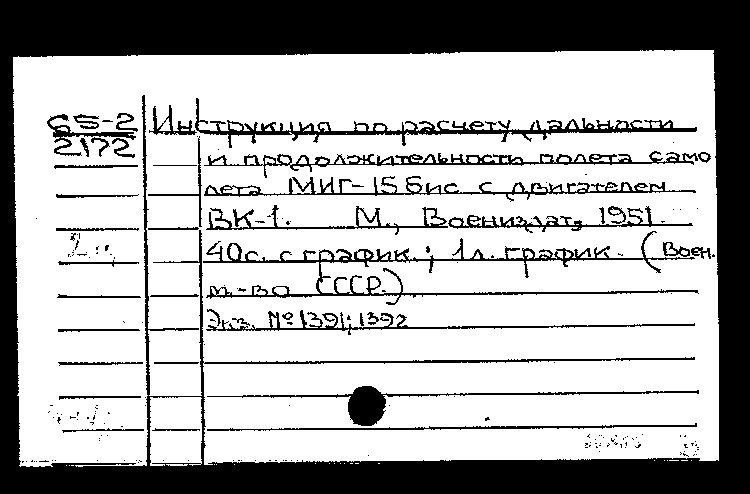 65-2
2172
Инструкция по расчету дальности
и продолжительности полета само
лета МИГ-15 бис с двигателем
ВК-1. М., Воениздат, 1951.
40с. с график.; 1л. график. (Воен.
м-во СССР.)
Экз. № 1391; 1392